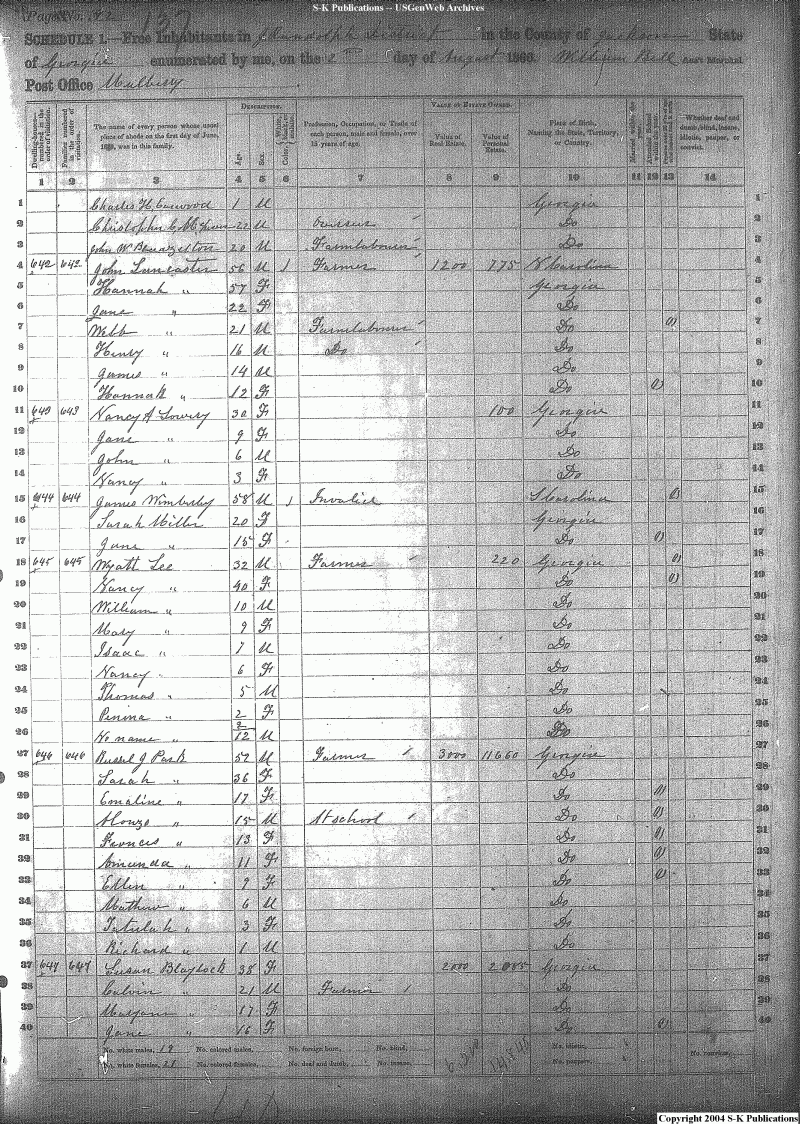 S-K Publications -- USGenWeb Archives
Page No. 92
137
SCHEDULE 1.—Free Inhabitants in Randolph District in the County of Jackson State
of Georgia enumerated by me, on the 2nd day of August 1860. William Bell Ass't Marshal
Post Office Mulberry
DESCRIPTION. VALUE OF ESTATE OWNED.
Dwelling-houses—numbered in the order of visitation. Families numbered in the order of visitation. The name of every person whose usual place of abode on the first day of June, 1860, was in this family. Age. Sex. Color, Profession, Occupation, or Trade of each person, male and female, over 15 years of age. Value of Real Estate. Value of Personal Estate. Place of Birth, Naming the State, Territory, or Country. Married within the year. Attended School within the year. Whether deaf and dumb, blind, insane, idiotic, pauper, or convict.
1 2 3 4 5 6 7 8 9 10 11 12 13 14
1 Charles H 1 M Georgia 1
2 22 M Overseer Do 2
3 John W 20 M Farm labourer Do 3
4 642 642 John Lancaster 56 M 1 Farmer 1200 775 N Carolina 4
5 Hannah " 57 F Georgia 5
6 Jane " 22 F Do 6
7 Webb " 21 M Farm labourer Do 7
8 Henry " 16 M Do Do 8
9 James " 14 M Do 9
10 Hannah " 12 F Do 10
11 643 643 Nancy A Lowery 30 F 100 Georgia 11
12 Jane " 9 F Do 12
13 John " 6 M Do 13
14 Nancy " 3 F Do 14
15 644 644 James Wimberly 58 M 1 Invalid S Carolina 15
16 Sarah Miller 20 F Georgia 16
17 Jane " 15 F Do 17
18 645 645 Wyatt Lee 32 M Farmer 220 Georgia 18
19 Nancy " 40 F Do 19
20 William " 10 M Do 20
21 Mary " 9 F Do 21
22 Isaac " 7 M Do 22
23 Nancy " 6 F Do 23
24 Thomas " 5 M Do 24
25 Penina " 2 F Do 25
26 No name " 2/12 M Do 26
27 646 646 Russel J Park 52 M Farmer 3000 11660 Georgia 27
28 Sarah " 36 F Do 28
29 Emaline " 17 F Do 29
30 Alonzo " 15 M At school Do 30
31 Frances " 13 F Do 31
32 Amanda " 11 F Do 32
33 Ellen " 9 F Do 33
34 Mathew " 6 M Do 34
35 Tatulah " 3 F Do 35
36 Richard " 1 M Do 36
37 647 647 Susan Blaylock 38 F 2000 Georgia 37
38 Calvin " 21 M Farmer Do 38
39 Maryann " 17 F Do 39
40 Jane " 16 F Do 40
No. white males, 19 No. colored males, No. foreign born, No. blind, No. idiotic, No. convicts,
No. white females, 21 No. colored females, No. deaf and dumb, No. insane, No. paupers,
Copyright 2004 S-K Publications